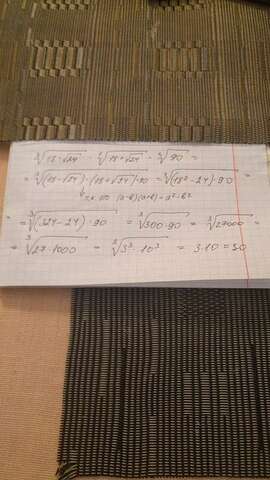 ∛(18-√24) · ∛(18+√24) · ∛90 =
= ∛((18-√24)·(18+√24)·90) = ∛((18²-24)·90) =
(a-b)(a+b) = a²-b²
= ∛((324-24)·90) = ∛(300·90) = ∛27000 =
= ∛(27·1000) = ∛(3³·10³) = 3·10 = 30